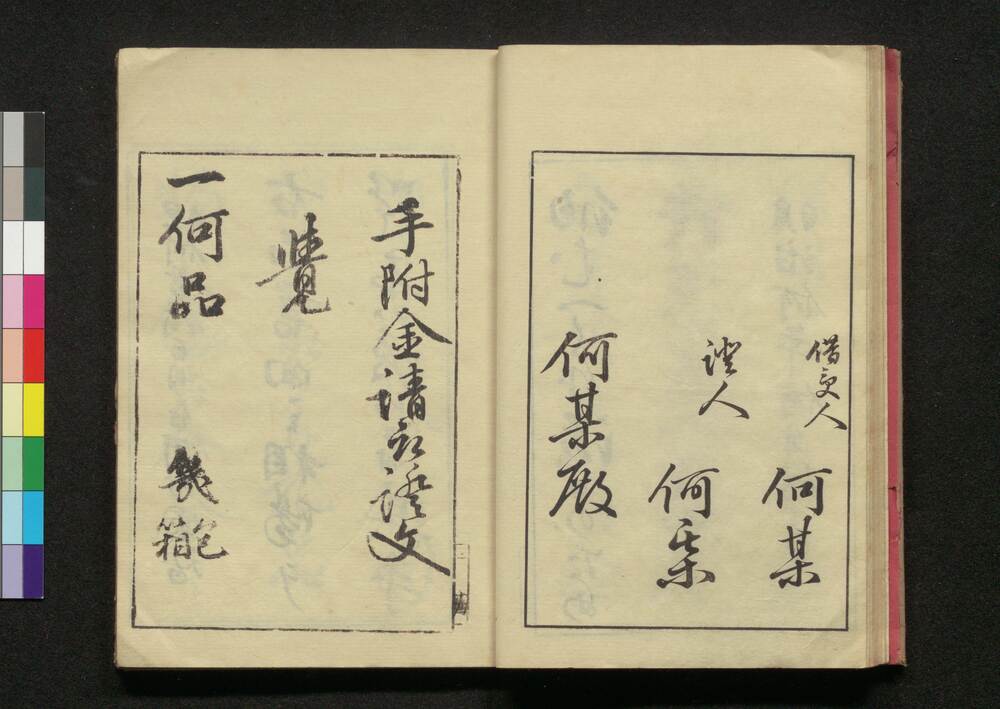 借主人
何某
證人
何某
何某殿
手附金請取證文
覺
一何品
幾箱